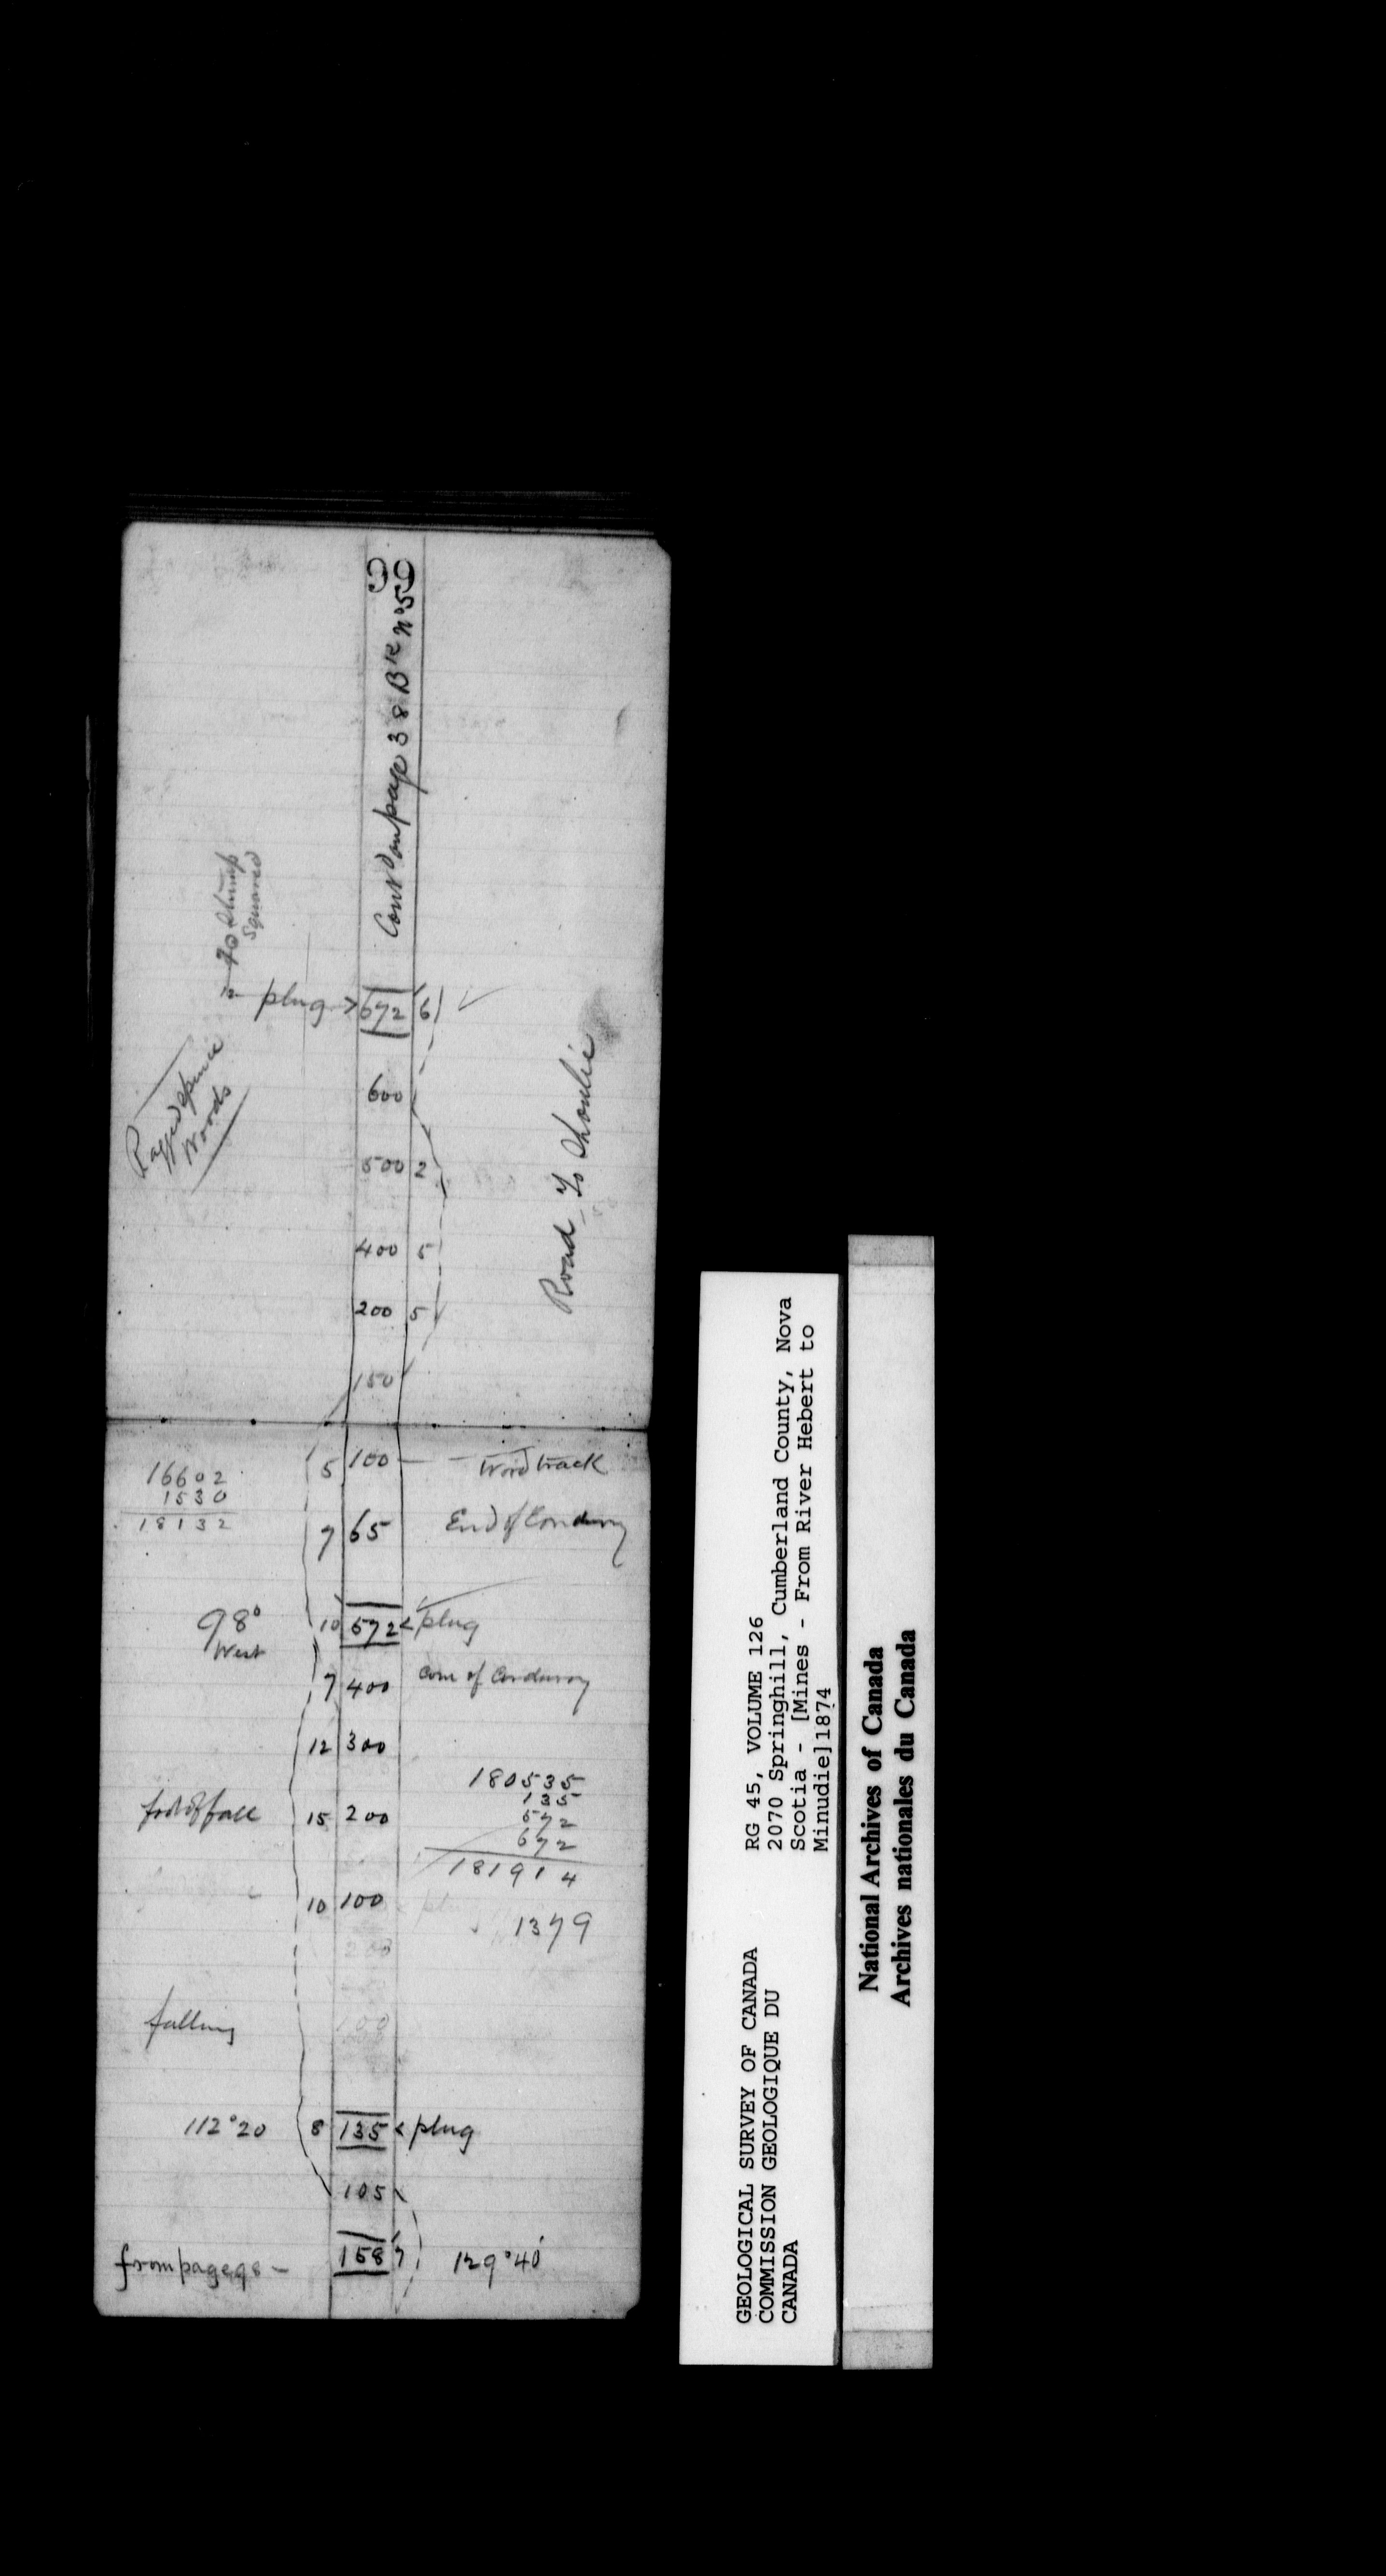 99
Contd on page 38 Bk No 5
To Stump
Squared
12 plug > 672 6
600
Ragged Spruce
Woods
500 2
Road To Shoulie
400 5
200 5
150
5 100 — Wood track
16602
1530
18132
7 65 End of Corduroy
98°
West
10 572 < plug
7 400 Com of Corduroy
12 300
foot of fall 15 200
180535
135
572
672
181914
10 100
1379
200
100
falling
112°20 8 135 < plug
105
from page 98 — 158 7 129°40'
GEOLOGICAL SURVEY OF CANADA
COMMISSION GEOLOGIQUE DU
CANADA
RG 45, VOLUME 126
2070 Springhill, Cumberland County, Nova
Scotia - [Mines - From River Hebert to
Minudie]1874
National Archives of Canada
Archives nationales du Canada